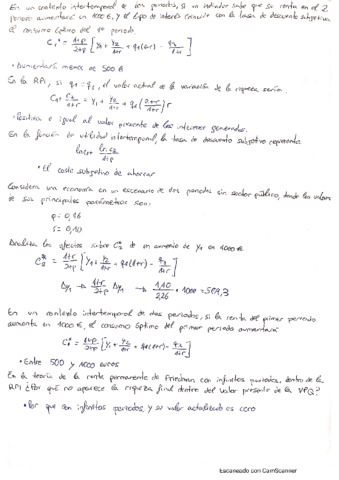 En un contexto intertemporal de dos periodos, si un individuo sabe que su renta en el 2
periodo aumentará en 1000 €, y el tipo de interés coincide con la tasa de descuento subjetiva
el consumo óptimo del 1er periodo,
C1* = 1+ρ/2+ρ [y1 + y2/1+r + q1(1+r) - q3/1+r]
• Aumentará menos de 500 €
En la RPI, si q1 = q3, el valor actual de la variación de la riqueza sería.
C1 + C2/1+r = y1 + y2/1+r + q1 (2+r/1+r) r
• Positiva e igual al valor presente de los intereses generados.
En la función de utilidad intertemporal, la tasa de descuento subjetivo representa
ln c1 + ln c2/1+ρ
• El coste subjetivo de ahorrar
Considera una economía en un escenario de dos periodos sin sector público, donde los valores
de sus principales parámetros son:
ρ = 0,16
r = 0,10
Analiza los efectos sobre C2* de un aumento de y1 en 1000 €
C2* = 1+r/2+ρ [y1 + y2/1+r + q1(1+r) - q3/1+r]
Δy1 → 1+r/2+ρ Δy1 → 1,10/2,16 · 1000 = 509,3
En un contexto intertemporal de dos periodos, si la renta del primer periodo
aumenta en 1000 €, el consumo óptimo del primer periodo aumentará
C1* = 1+ρ/2+ρ [y1 + y2/1+r + q1(1+r) - q3/1+r]
• Entre 500 y 1000 euros
En la teoría de la renta permanente de Friedman con infinitos periodos, dentro de la
RPI ¿Por qué no aparece la riqueza final dentro del valor presente de la
• Por que son infinitos periodos, y su valor actualizado es cero
Escaneado con CamScanner